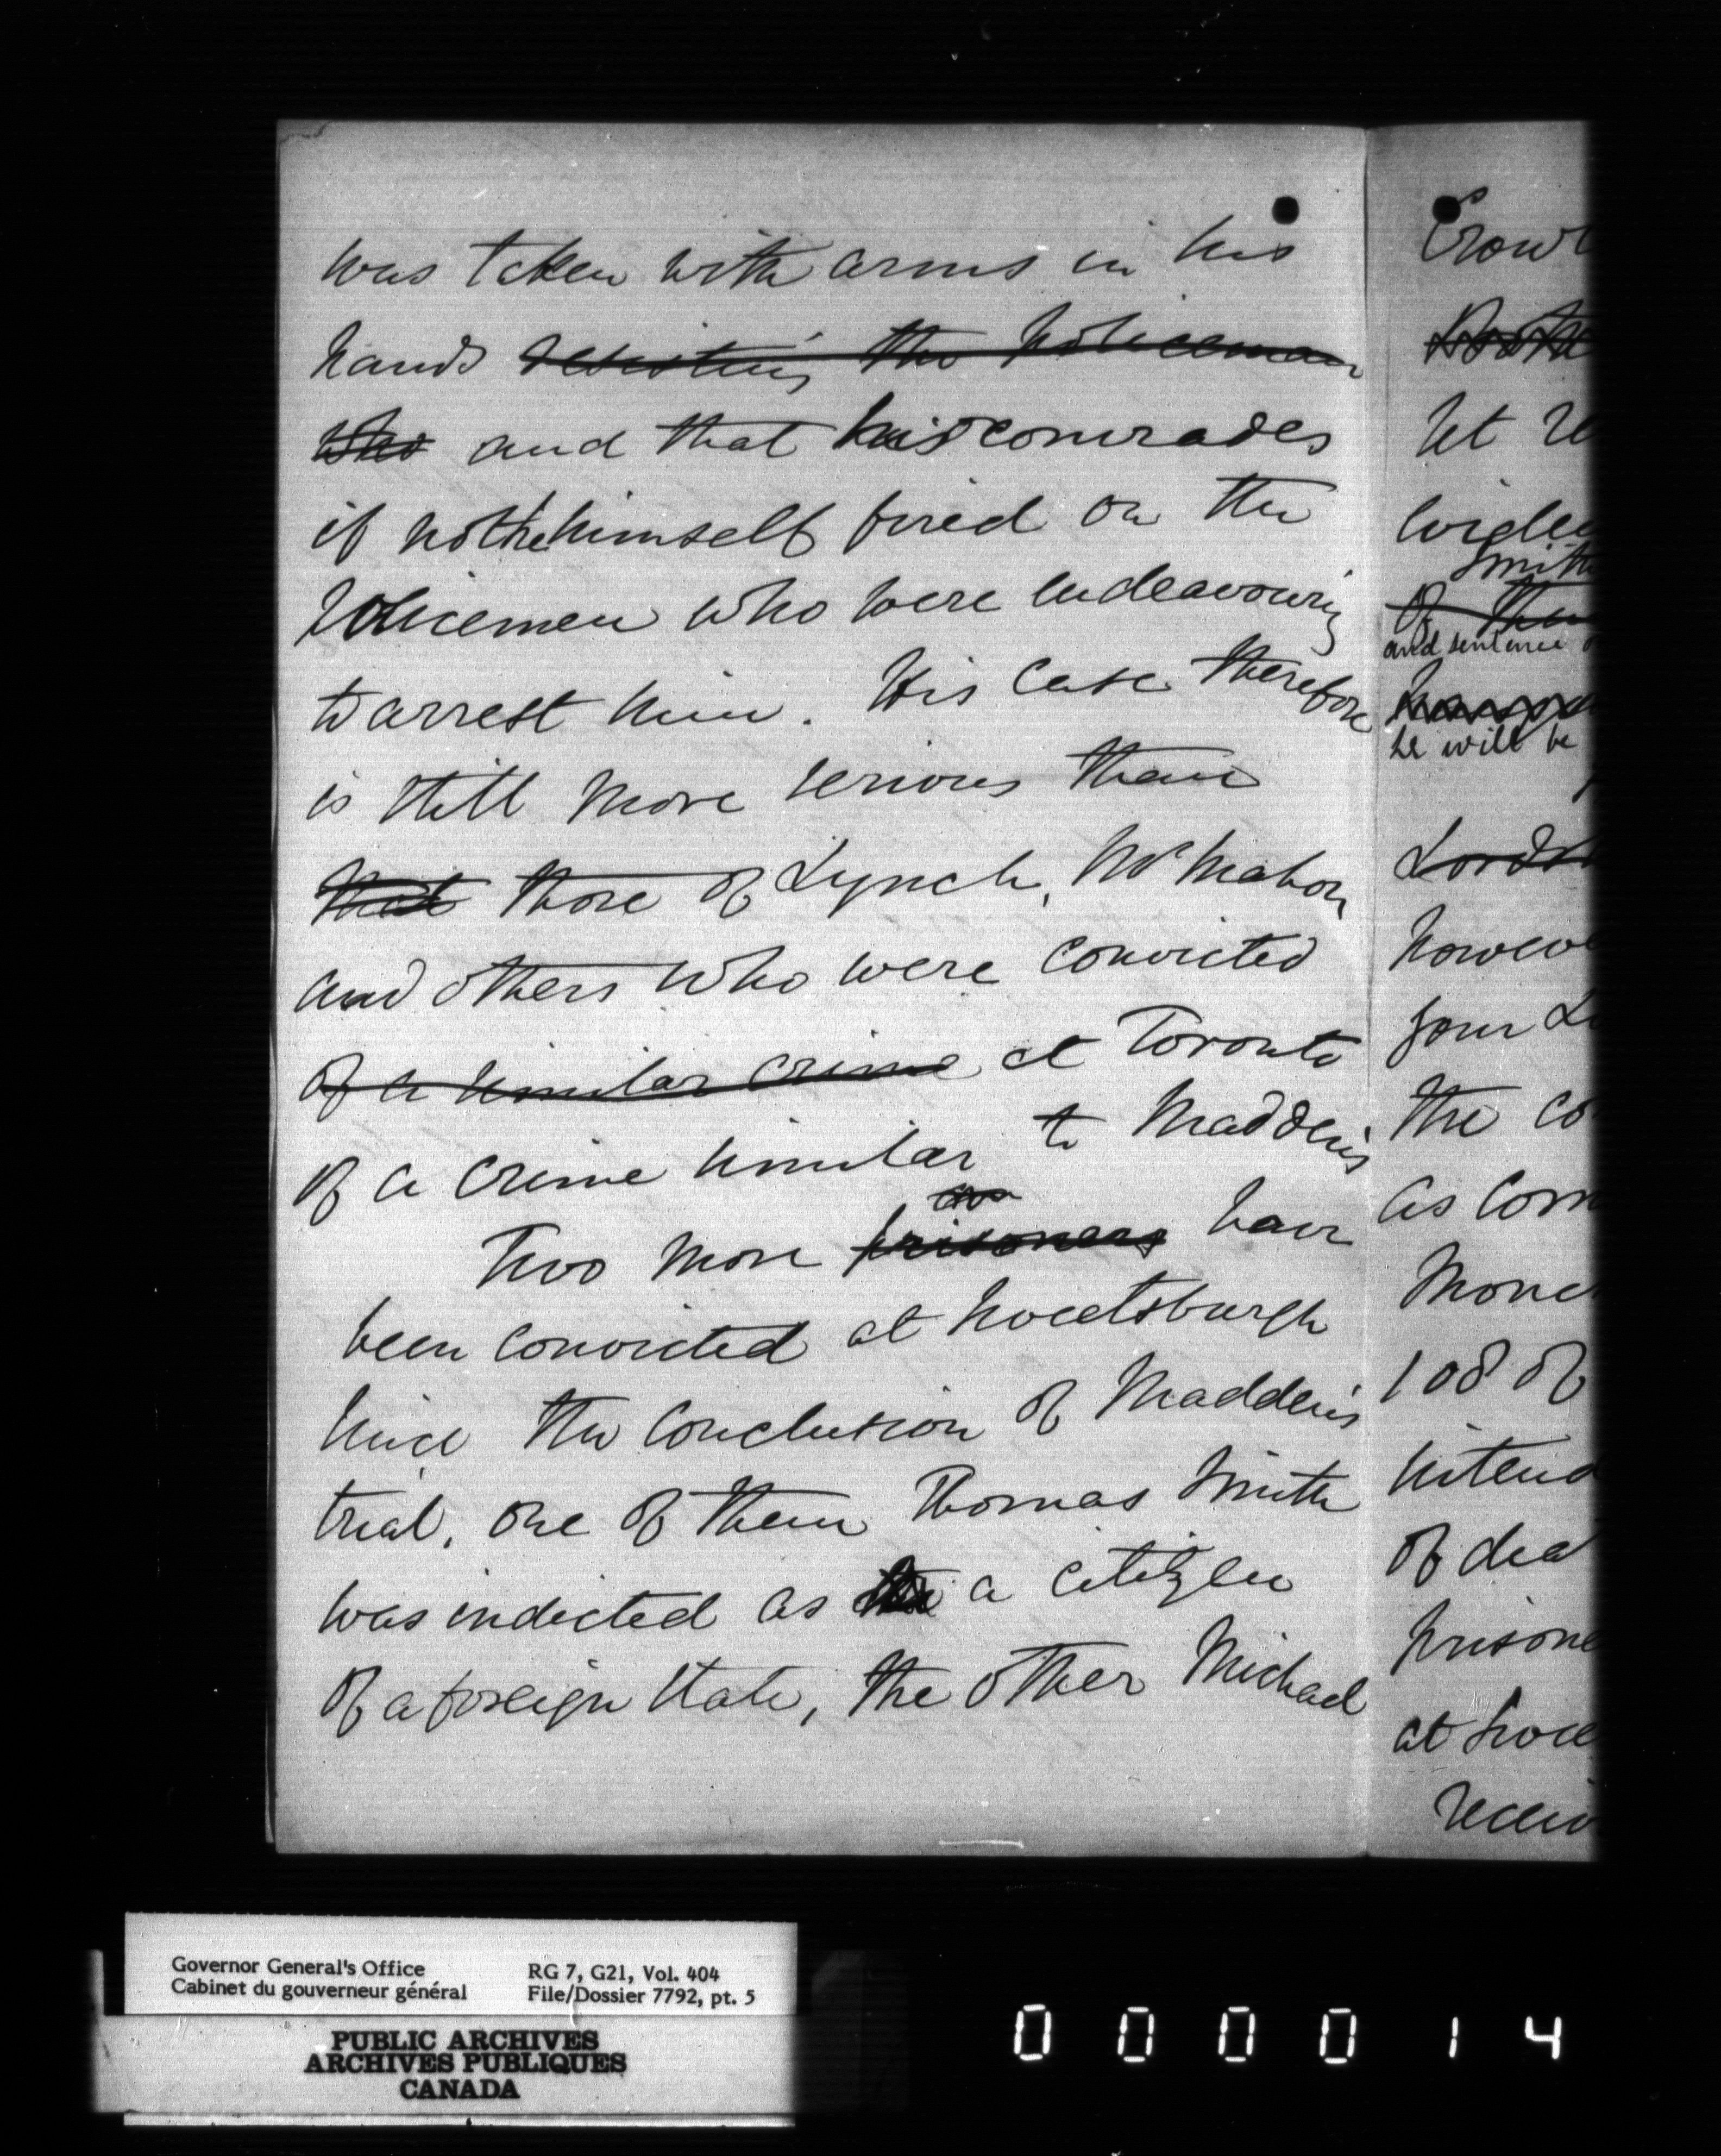 was taken with arms in his
hands resisting the policeman
who and that his comrades
if not he himself fired on the
Policemen who were endeavouring
to arrest him. His case therefore
is still more serious than
that those of Lynch, McMahon
and others who were convicted
of a similar crime at Toronto
of a crime similar to Madden's
Two more prisoners have
been convicted at Sweetsburgh
since the conclusion of Madden's
trial, one of them Thomas Smith
was indicted as a citizen
of a foreign state, the other Michael
Crow
let
Smith
of
and sentence
he will be
Lords
howeve
your
the co
as com
Monc
108 of
intend
of dea
prisone
at Swee
receiv
Governor General's Office
Cabinet du gouverneur général
RG 7, G21, Vol. 404
File/Dossier 7792, pt. 5
PUBLIC ARCHIVES
ARCHIVES PUBLIQUES
CANADA
000014